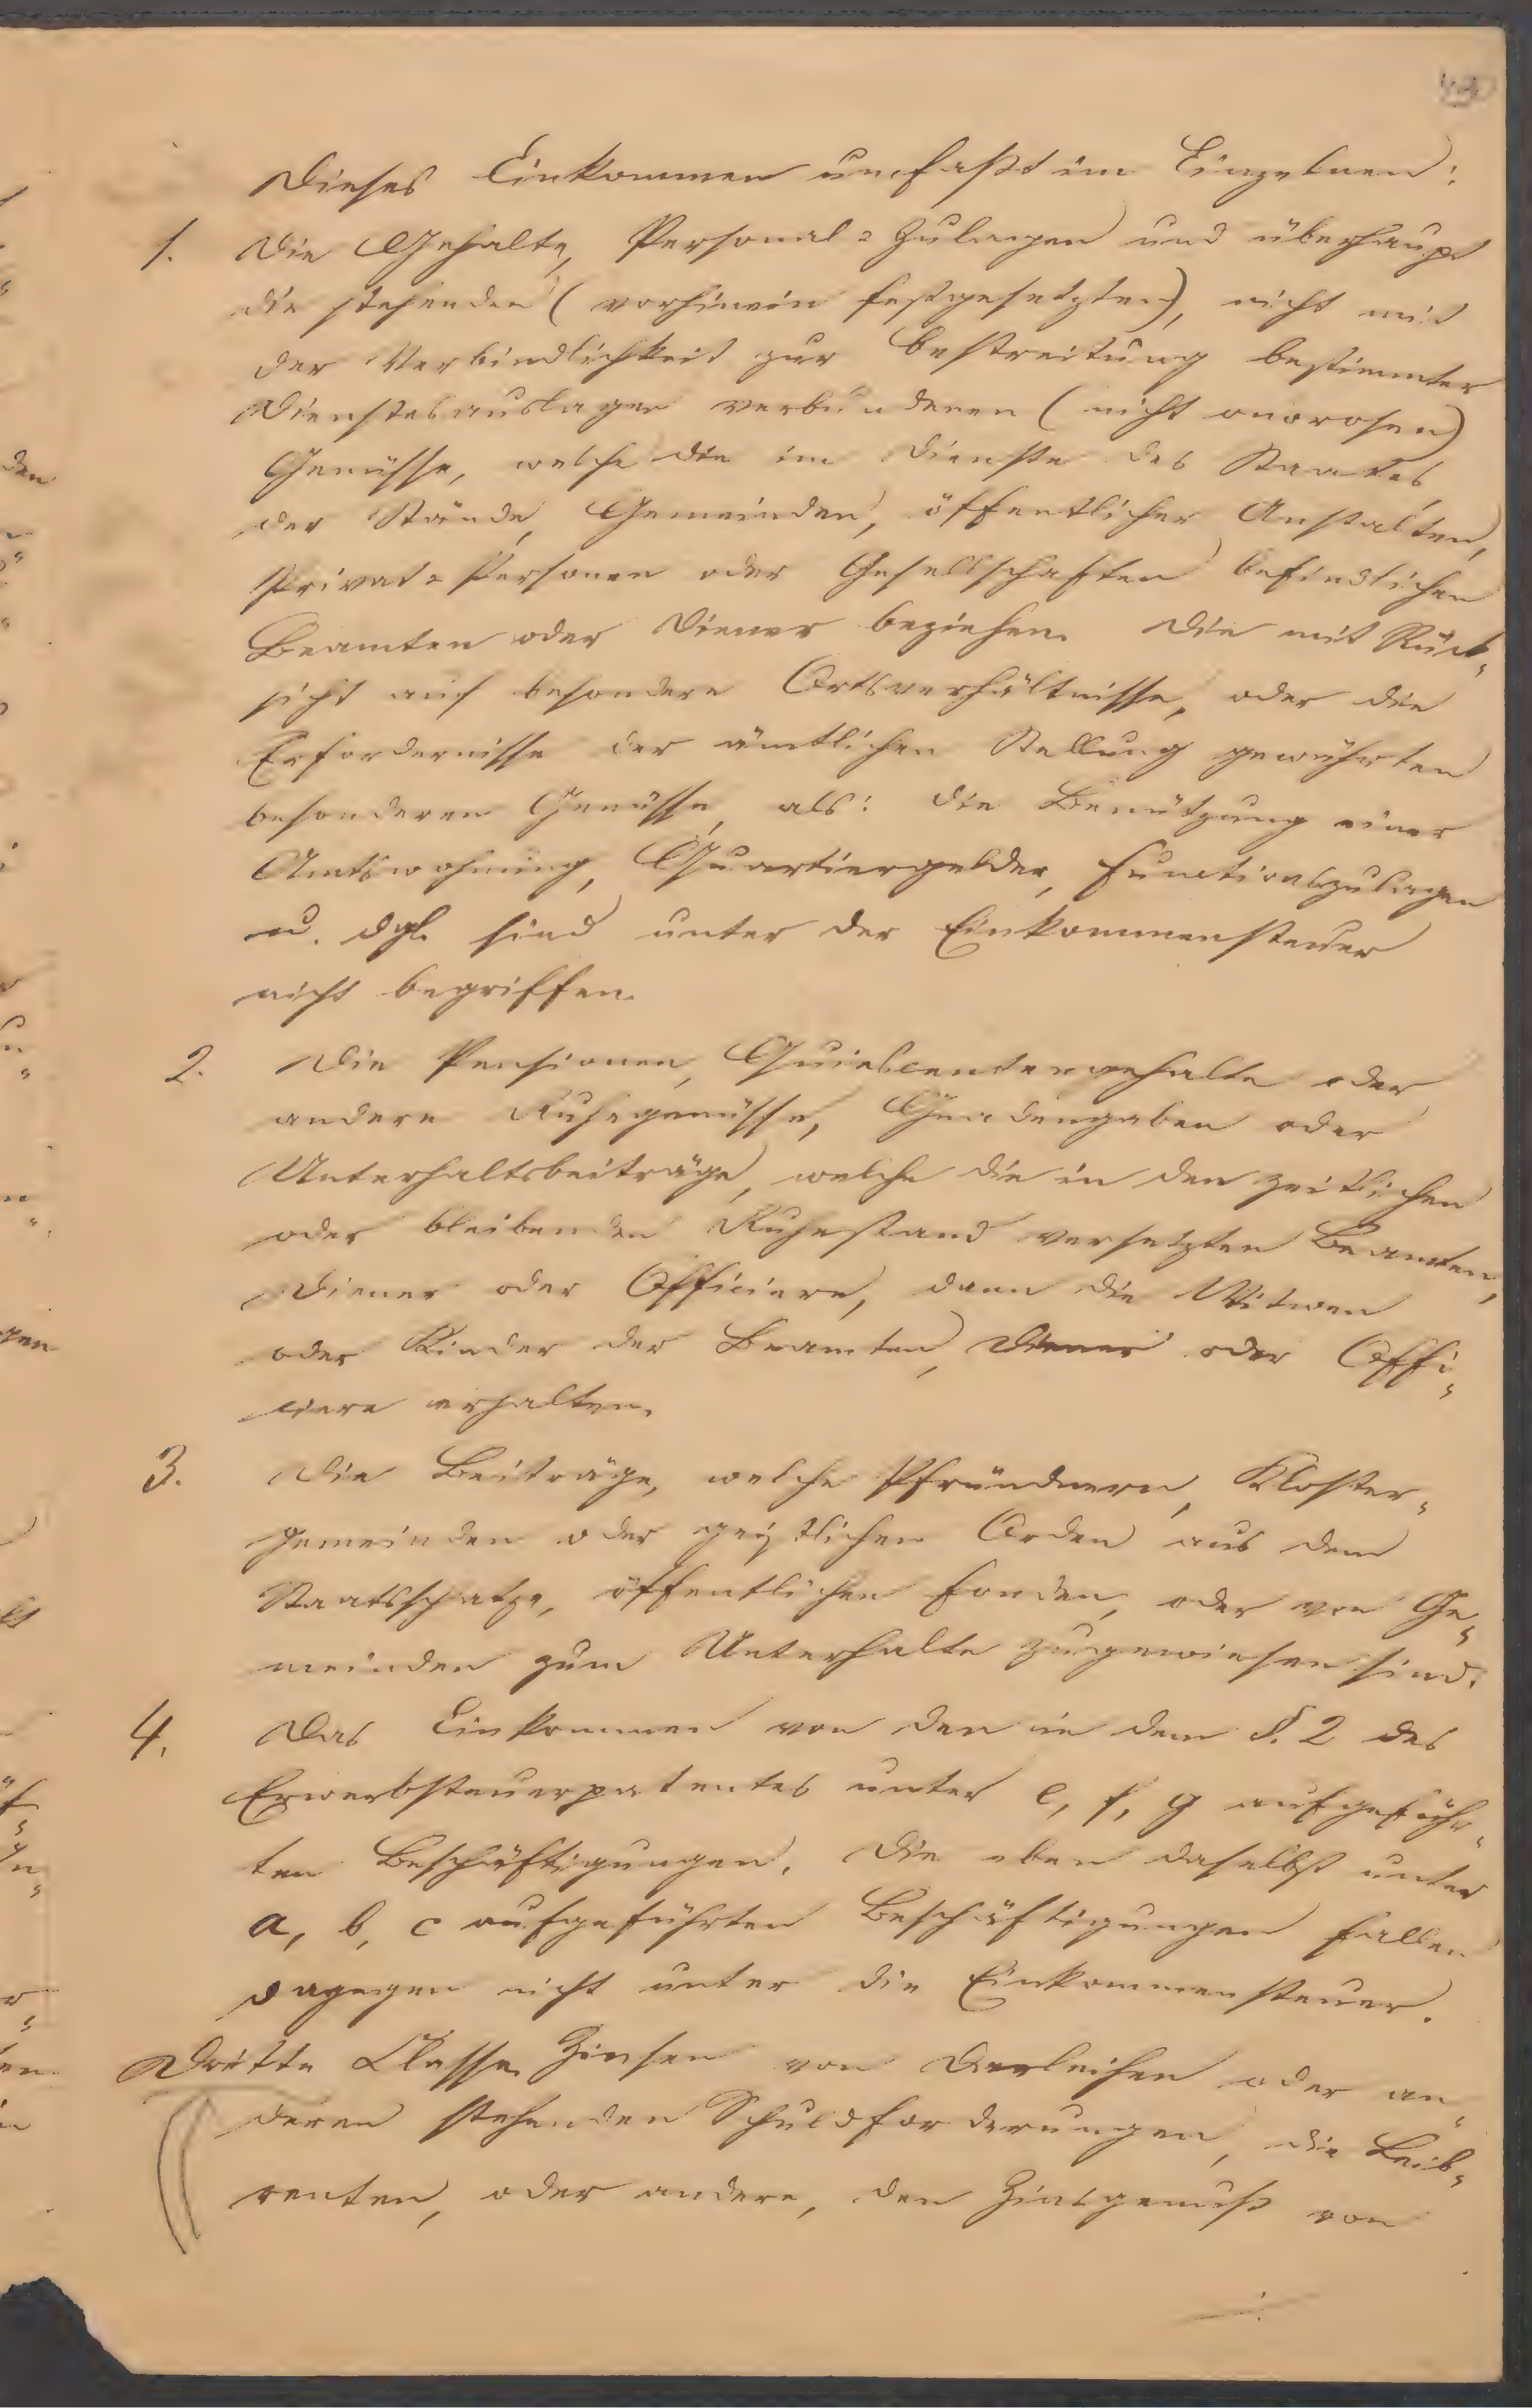 Dieses Einkommen umfaßt im Einzelnen:
1. Die Gehalte, Personal-Zulagen und überhaupt
die stehenden (vorhinein festgesetzten), nicht mit
der Verbindlichkeit zur Bestreitung bestimmter
Dienstesauslagen verbundenen (nicht onorosen)
Genüsse, welche die im Dienste des Staates,
der Stände, Gemeinden, öffentlicher Anstalten,
Privat-Personen oder Gesellschaften befindlichen
Beamten oder Diener beziehen. Die mit Rück-
sicht auf besondere Ortsverhältnisse, oder die
Erfordernisse der ämtlichen Stellung gewährten
besonderen Genüsse, als: die Benützung einer
Amtswohnung, Quartiergelder, Functionszulagen
u. dgl. sind unter der Einkommensteuer
nicht begriffen.
2. Die Pensionen, Quiescentengehalte oder
andere Ruhegenüsse, Gnadengaben oder
Unterhaltsbeiträge, welche die in den zeitlichen
oder bleibenden Ruhestand versetzten Beamten,
Diener oder Officiere, dann die Witwen
oder Kinder der Beamten, Diener oder Offi-
ciere erhalten.
3. Die Beiträge, welche Pfründnern, Kloster-
gemeinden oder geistlichen Orden aus dem
Staatsschatze, öffentlichen Fonden, oder von Ge-
meinden zum Unterhalte zugewiesen sind.
4. Das Einkommen von den in dem §. 2 des
Erwerbsteuerpatentes unter e, f, g aufgeführ-
ten Beschäftigungen. Die eben daselbst unter
a, b, c aufgeführten Beschäftigungen fallen
dagegen nicht unter die Einkommensteuer.
Dritte Classe. Zinsen von Darleihen oder an-
deren stehenden Schuldforderungen, die Leib-
renten, oder andere, den Zinsgenuß von